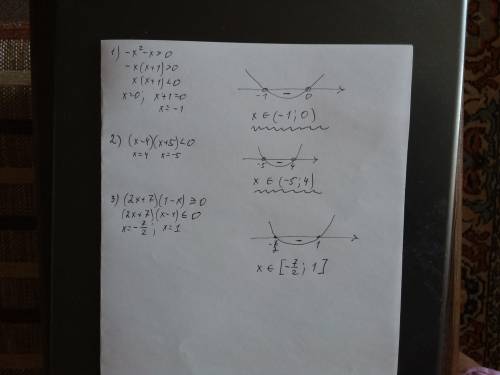 1) -x²-x>0
-x(x+1)>0
x(x+1)<0
x=0; x+1=0
x=-1
-1 - 0
x ∈ (-1; 0)
2) (x-4)(x+5)<0
x=4 x=-5
-5 - 4
x ∈ (-5; 4)
3) (2x+7)(1-x) ≥ 0
(2x+7)(x-1) ≤ 0
x=-7/2; x=1
-7/2 - 1
x ∈ [-7/2; 1]